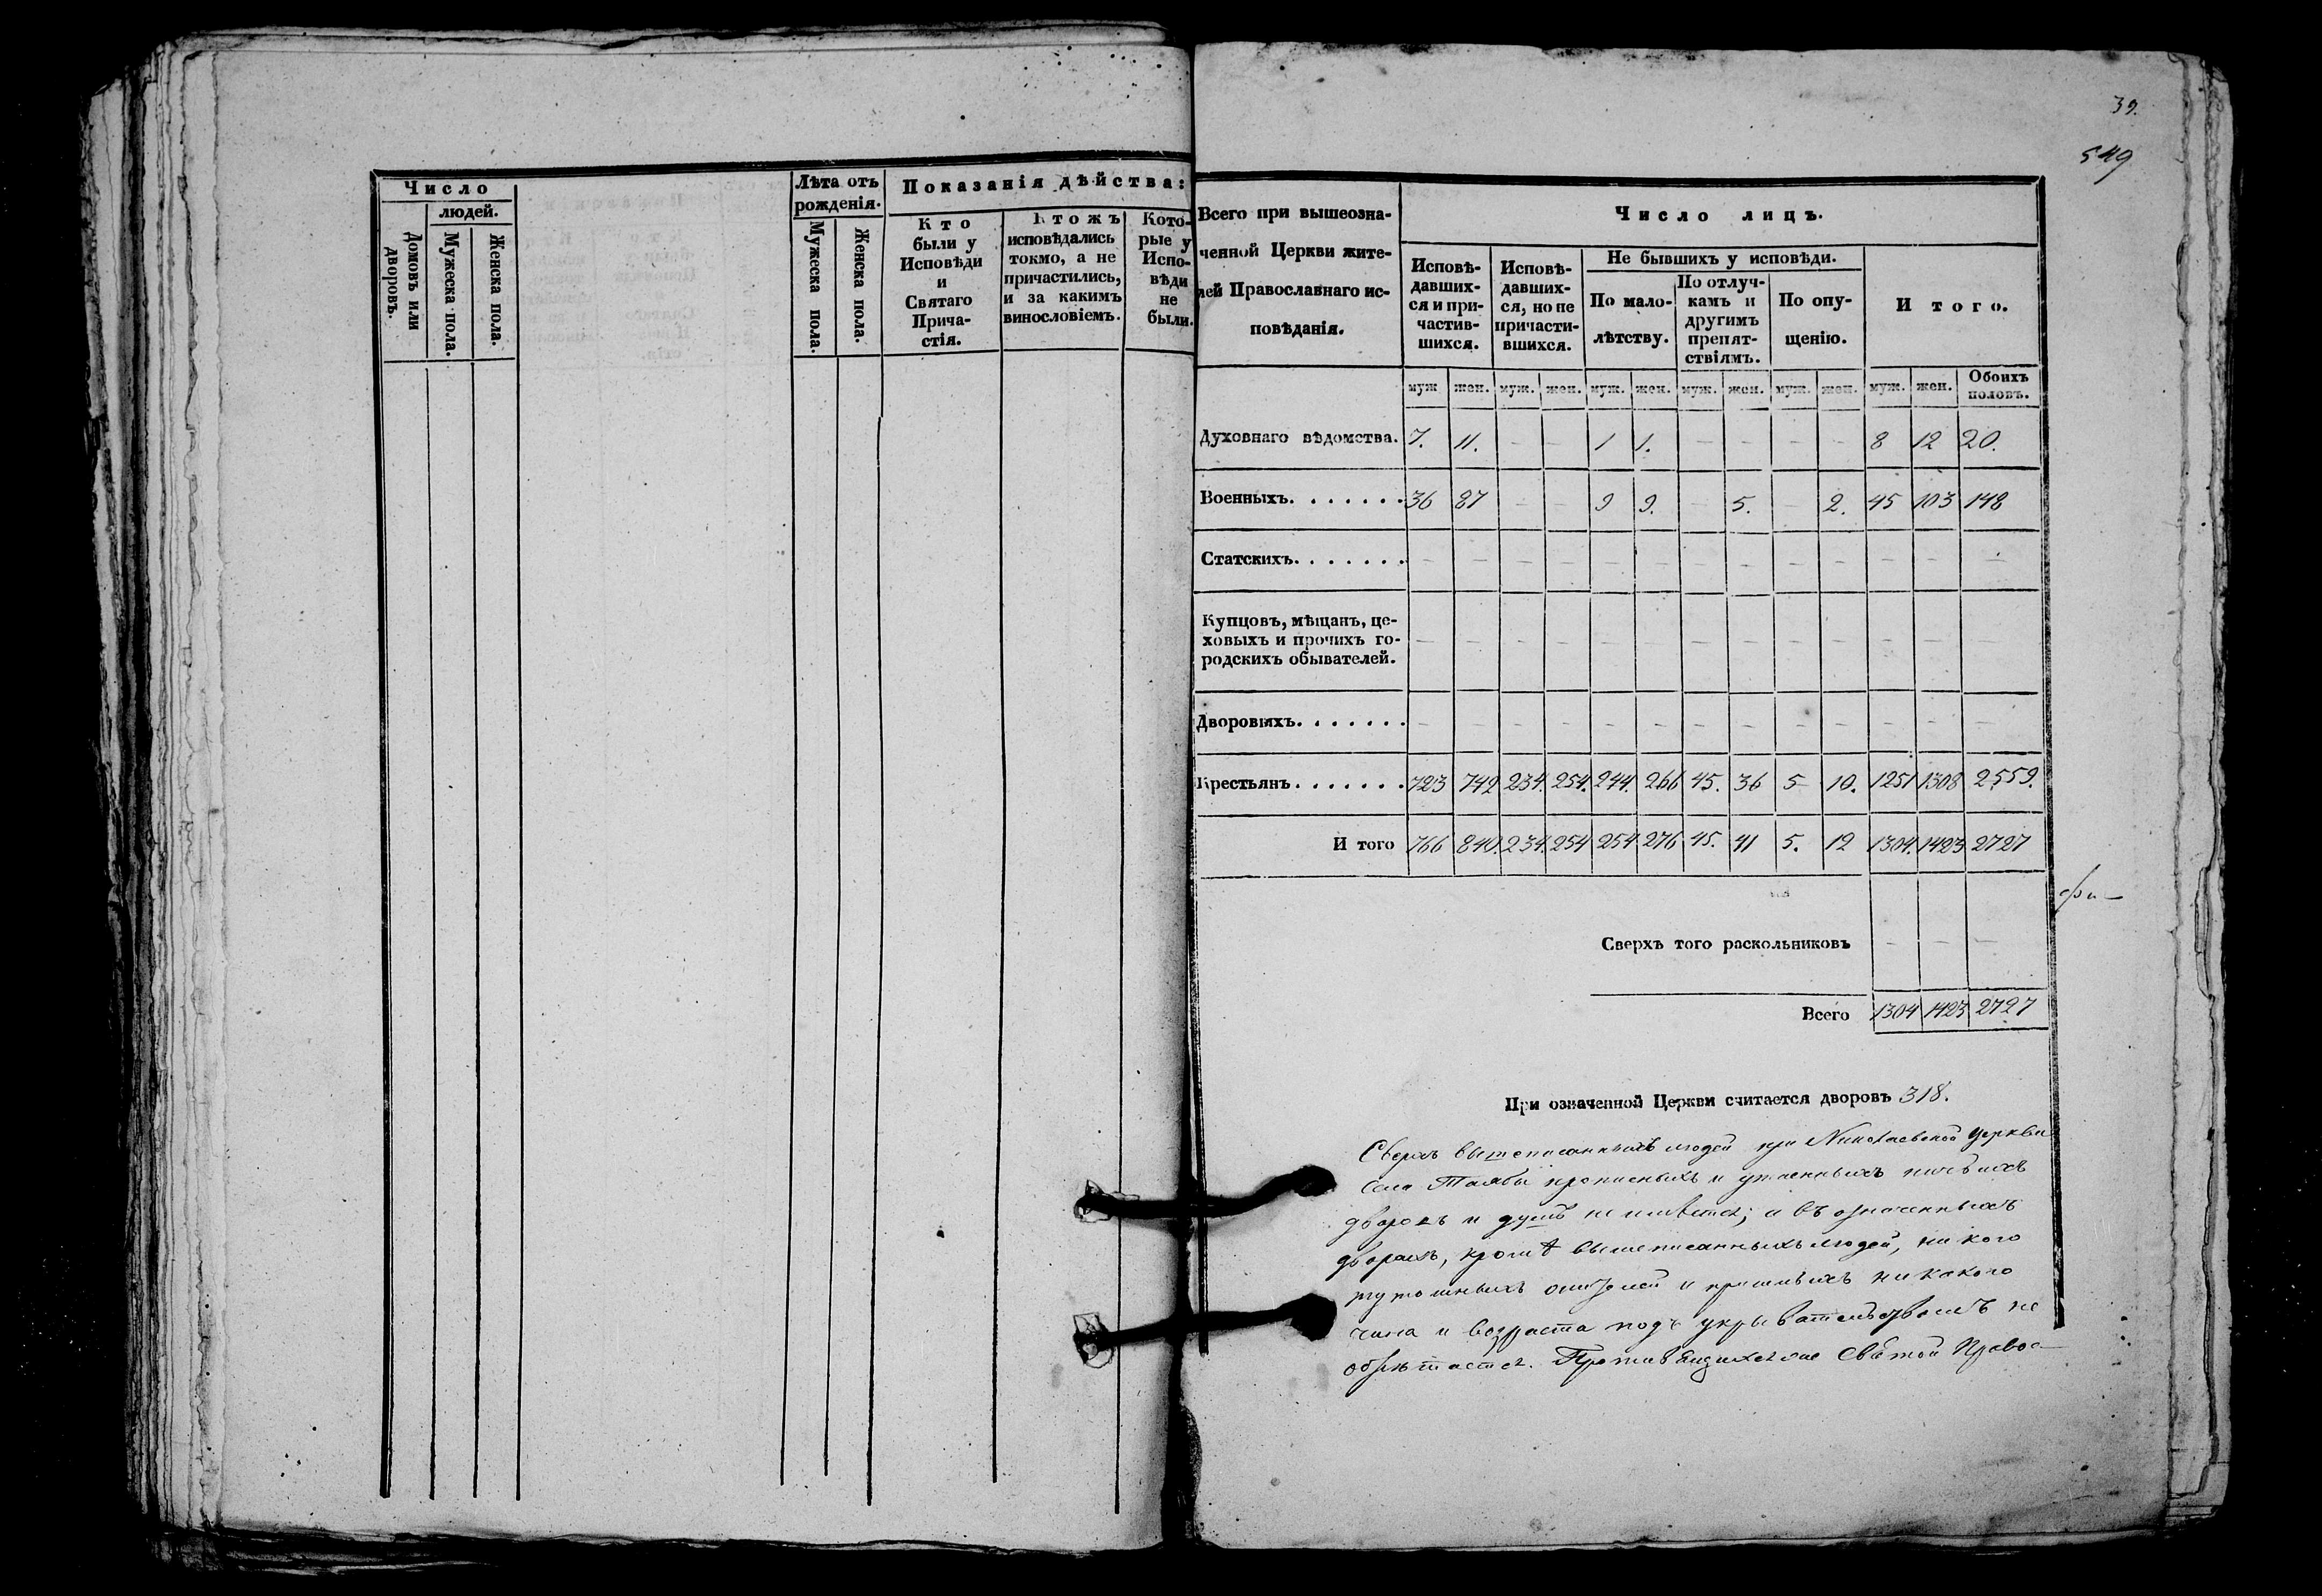 39.
549
Число
людей.
Домовъ или дворовъ.
Мужеска пола.
Женска пола.
Лѣта отъ рожденія.
Мужеска пола.
Женска пола.
Показанія дѣйства:
Кто были у Исповѣди и Святаго Прича-стія.
Ктожъ исповѣдались токмо, а не причастились, и за какимъ винословіемъ.
Кото-рые у Испо-вѣди не были.
Всего при вышеозна-
ченной Церкви жите-
лей Православнаго ис-
повѣданія.
Число лицъ.
Исповѣ-давших-ся и при-частив-шихся.
Исповѣ-давших-ся, но не причасти-вшихся.
Не бывшихъ у исповѣди.
По мало-лѣтству.
По отлуч-камъ и другимъ препят-ствіямъ.
По опу-щенію.
Итого.
муж жен. муж. жен. муж. жен. муж. жен. муж. жен. муж. жен. Обоихъ половъ.
Духовнаго вѣдомства. 7. 11. — — 1 1. — — — — 8 12 20.
Военныхъ. . . . . . . 36 87 — — 9 9. — 5. — 2. 45 103 148
Статскихъ. . . . . . . — — — — — — — — — — — — —
Купцовъ, мѣщанъ, це-
ховыхъ и прочихъ го-
родскихъ обывателей. — — — — — — — — — — — — —
Дворовыхъ. . . . . . . — — — — — — — — — — — — —
Крестьянъ. . . . . . . 723 742 234. 254. 244. 266 45. 36 5 10. 1251 1308 2559.
И того 766 840. 234. 254 254 276 45. 41 5. 12 1304. 1423 2727
Сверхъ того раскольниковъ — — —
Всего 1304 1423 2727
При означенной Церкви считается дворовъ 318.
Сверхъ вышеписанныхъ людей при Николаевской Церкви
Села Тамбы прописныхъ и утаенныхъ
дворовъ и душъ не имѣется; а въ означенныхъ
дворахъ, кромѣ вышеписанныхъ людей, никого
и никакого
чина и возраста подъ укрывательствомъ не
обрѣтается. Святой Правос-